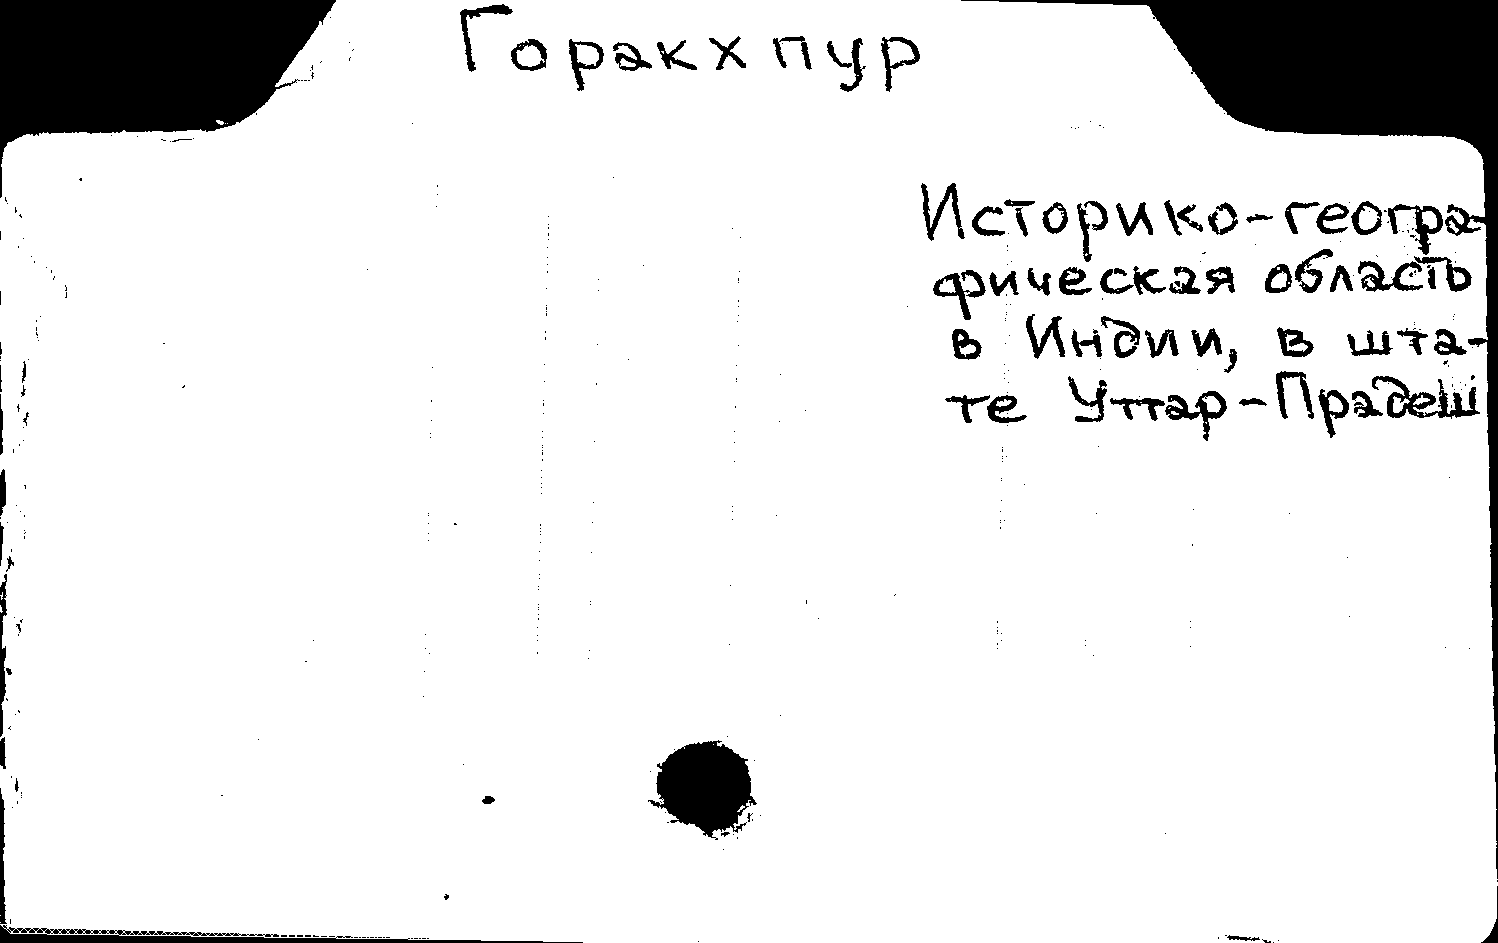 Горакхпур
Историко-геогра-
фическая область
в Индии, в шта-
те Уттар-Прадеш